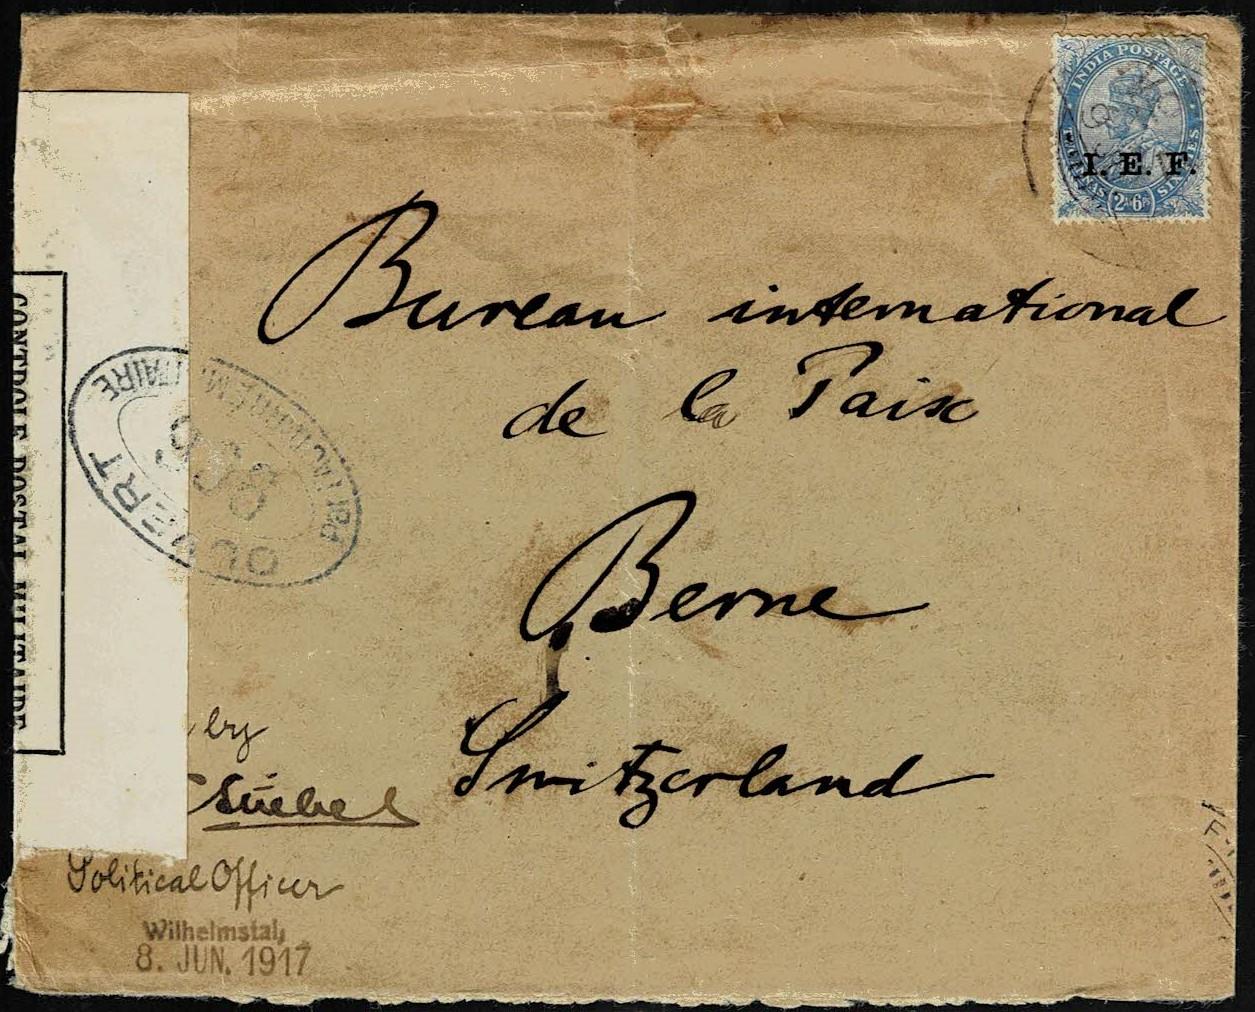 INDIA POSTAGE
I. E. F.
2As6Ps
Bureau international
de la Paix
Berne
Switzerland
CONTROLE POSTAL MILITAIRE
OUVERT
PAR L'AUTORITÉ MILITAIRE
by
Political Officer
Wilhelmstal,
8. JUN. 1917